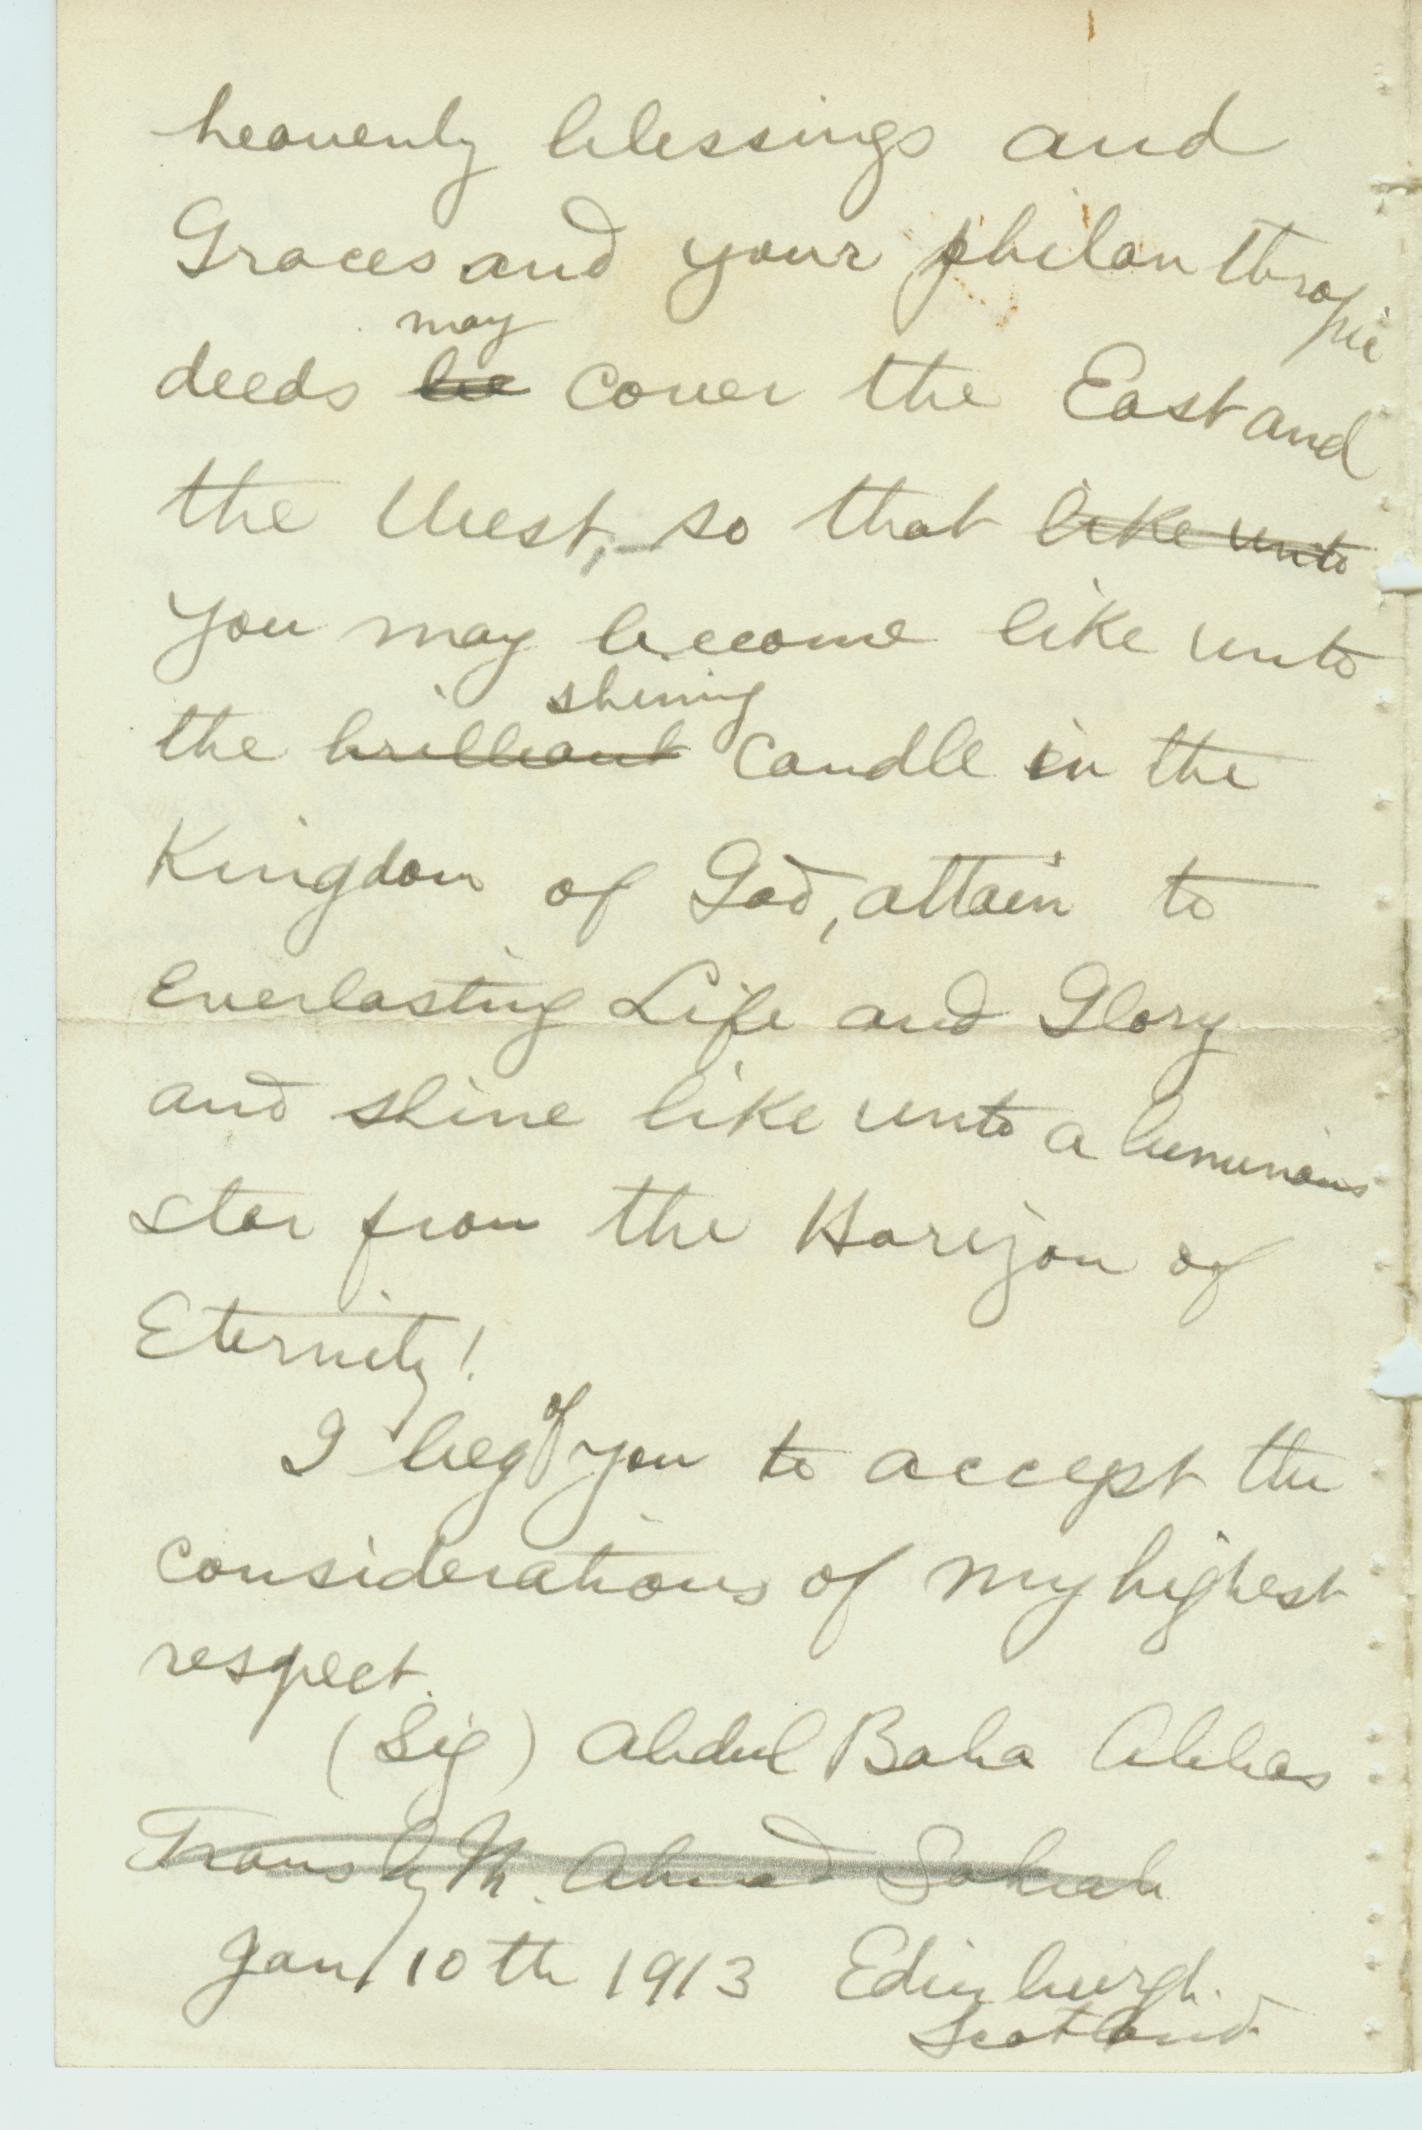 heavenly blessings and
Graces and your philanthropic
may
deeds be cover the East and
the West, so that like unto
you may become like unto
shining
the brilliant candle in the
Kingdom of God, attain to
Everlasting Life and Glory
and shine like unto a luminous
star from the Horizon of
Eternity!
I beg of you to accept the
considerations of my highest
respect.
(Sig) Abdul Baha Abbas
Trans by M. Ahmad Sohrab
Jan 10th 1913 Edinburgh.
Scotland.